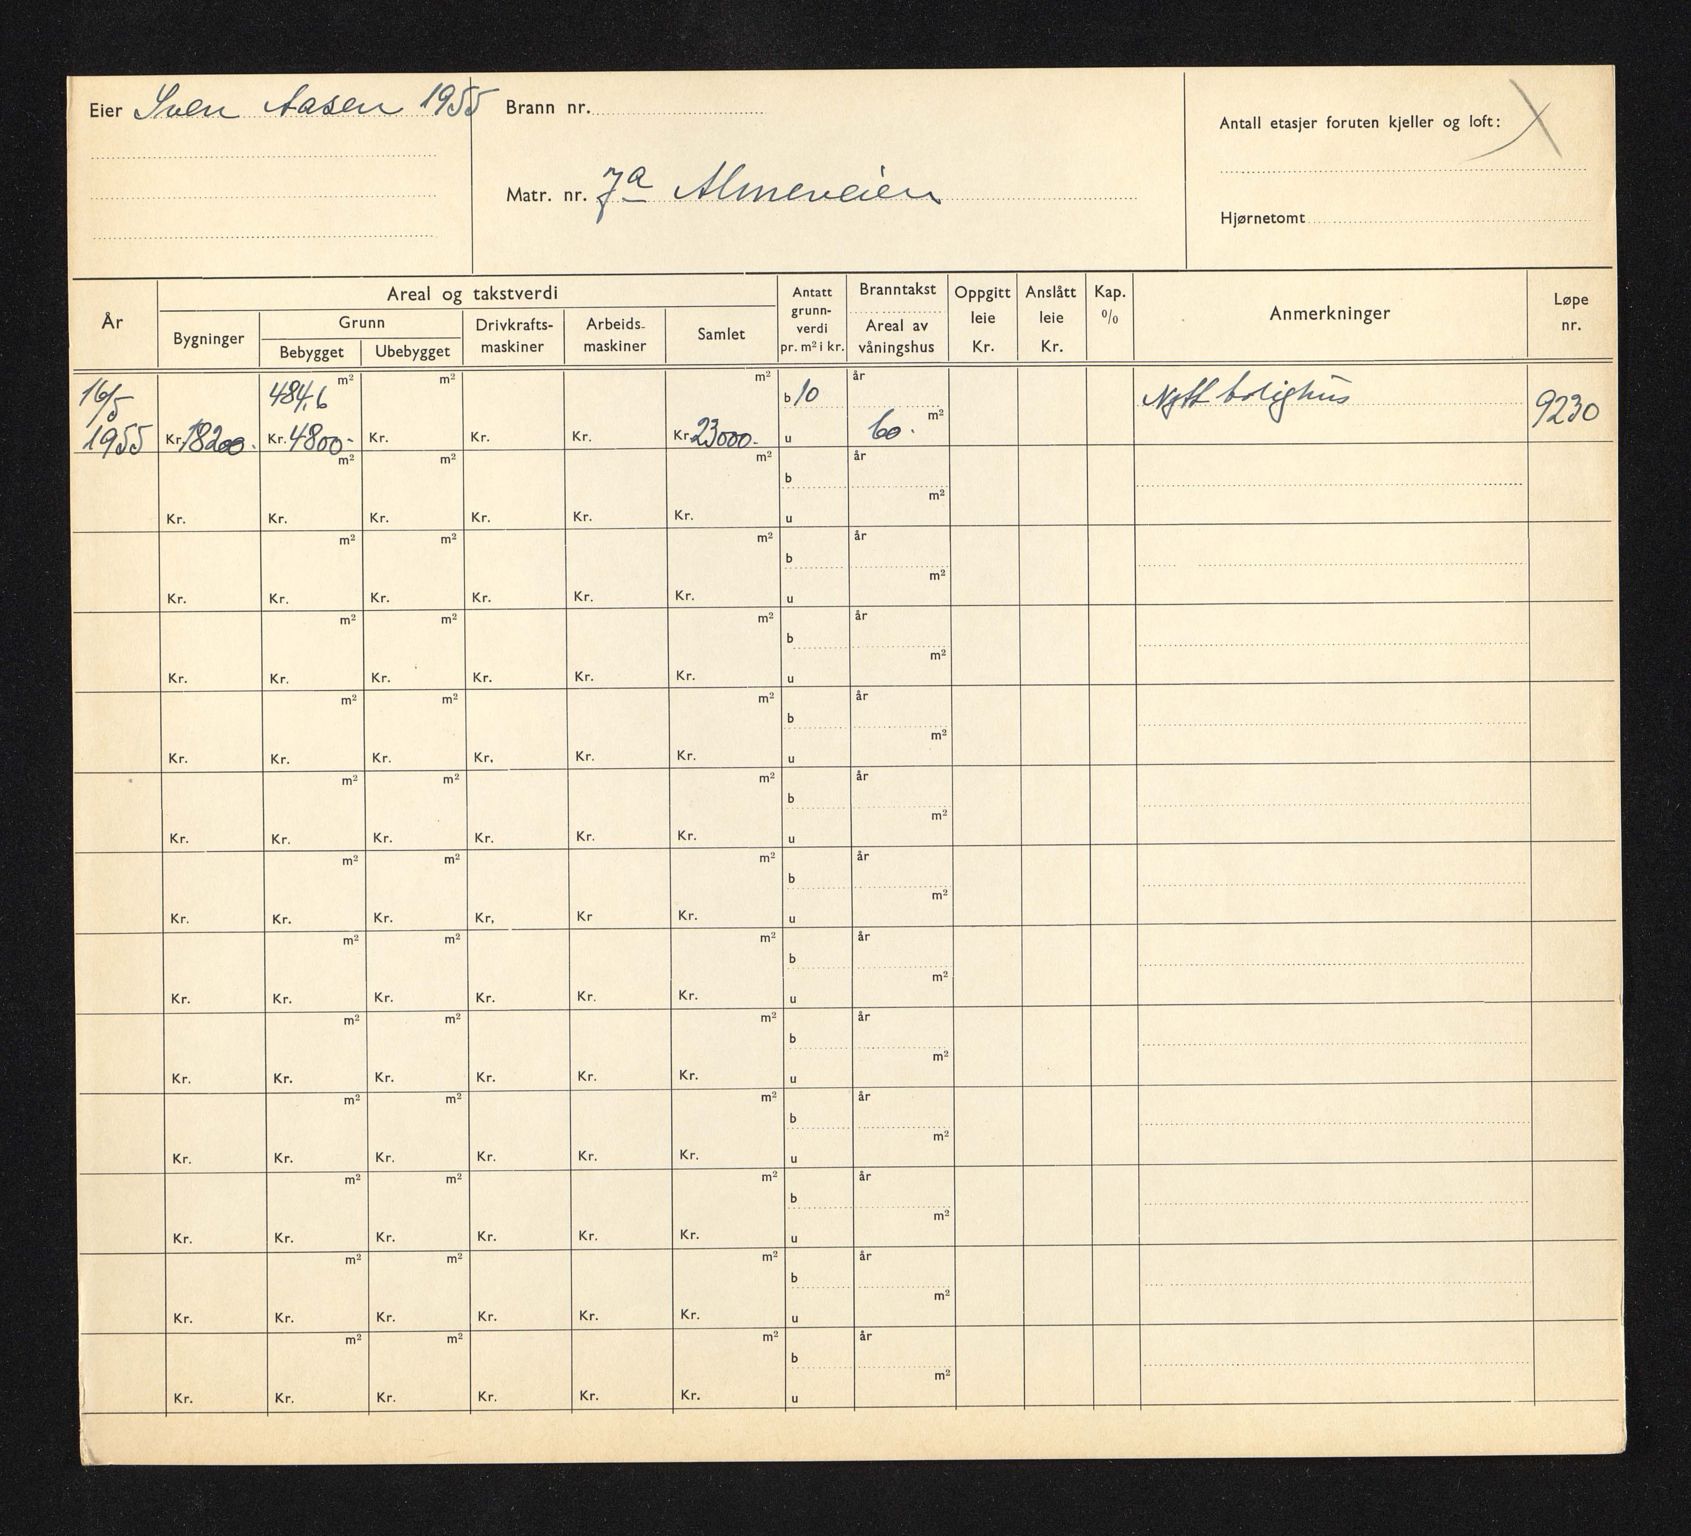 Eier Sven Aasen 1955 Brann nr. Antall etasjer foruten kjeller og loft:
Matr. nr. 7a Almeveien
Hjørnetomt
År Areal og takstverdi Antatt grunn-verdi pr. m² i kr. Branntakst Oppgitt leie Kr. Anslått leie Kr. Kap. % Anmerkninger Løpe nr.
Bygninger Grunn Drivkrafts-maskiner Arbeids-maskiner Samlet Areal av våningshus
Bebygget Ubebygget
16/5 484,6 m² m² m² b 10 år Nytt bolighus 9230
1955 Kr. 18200.- Kr. 4800.- Kr. Kr. Kr. Kr. 23000.- u 60. m²
m² m² m² b år
Kr. Kr. Kr. Kr. Kr. Kr. u m²
m² m² m² b år
Kr. Kr. Kr. Kr. Kr. Kr. u m²
m² m² m² b år
Kr. Kr. Kr. Kr. Kr. Kr. u m²
m² m² m² b år
Kr. Kr. Kr. Kr. Kr. Kr. u m²
m² m² m² b år
Kr. Kr. Kr. Kr. Kr. Kr. u m²
m² m² m² b år
Kr. Kr. Kr. Kr, Kr Kr. u m²
m² m² m² b år
Kr. Kr. Kr. Kr. Kr. Kr. u m²
m² m² m² b år
Kr. Kr. Kr. Kr. Kr. Kr. u m²
m² m² m² b år
Kr. Kr. Kr. Kr. Kr. Kr. u m²
m² m² m² b år
Kr. Kr. Kr. Kr. Kr. Kr. u m²
m² m² m² b år
Kr. Kr. Kr. Kr. Kr. Kr. u m²
m² m² m² b år
Kr. Kr. Kr. Kr. Kr. Kr. u m²